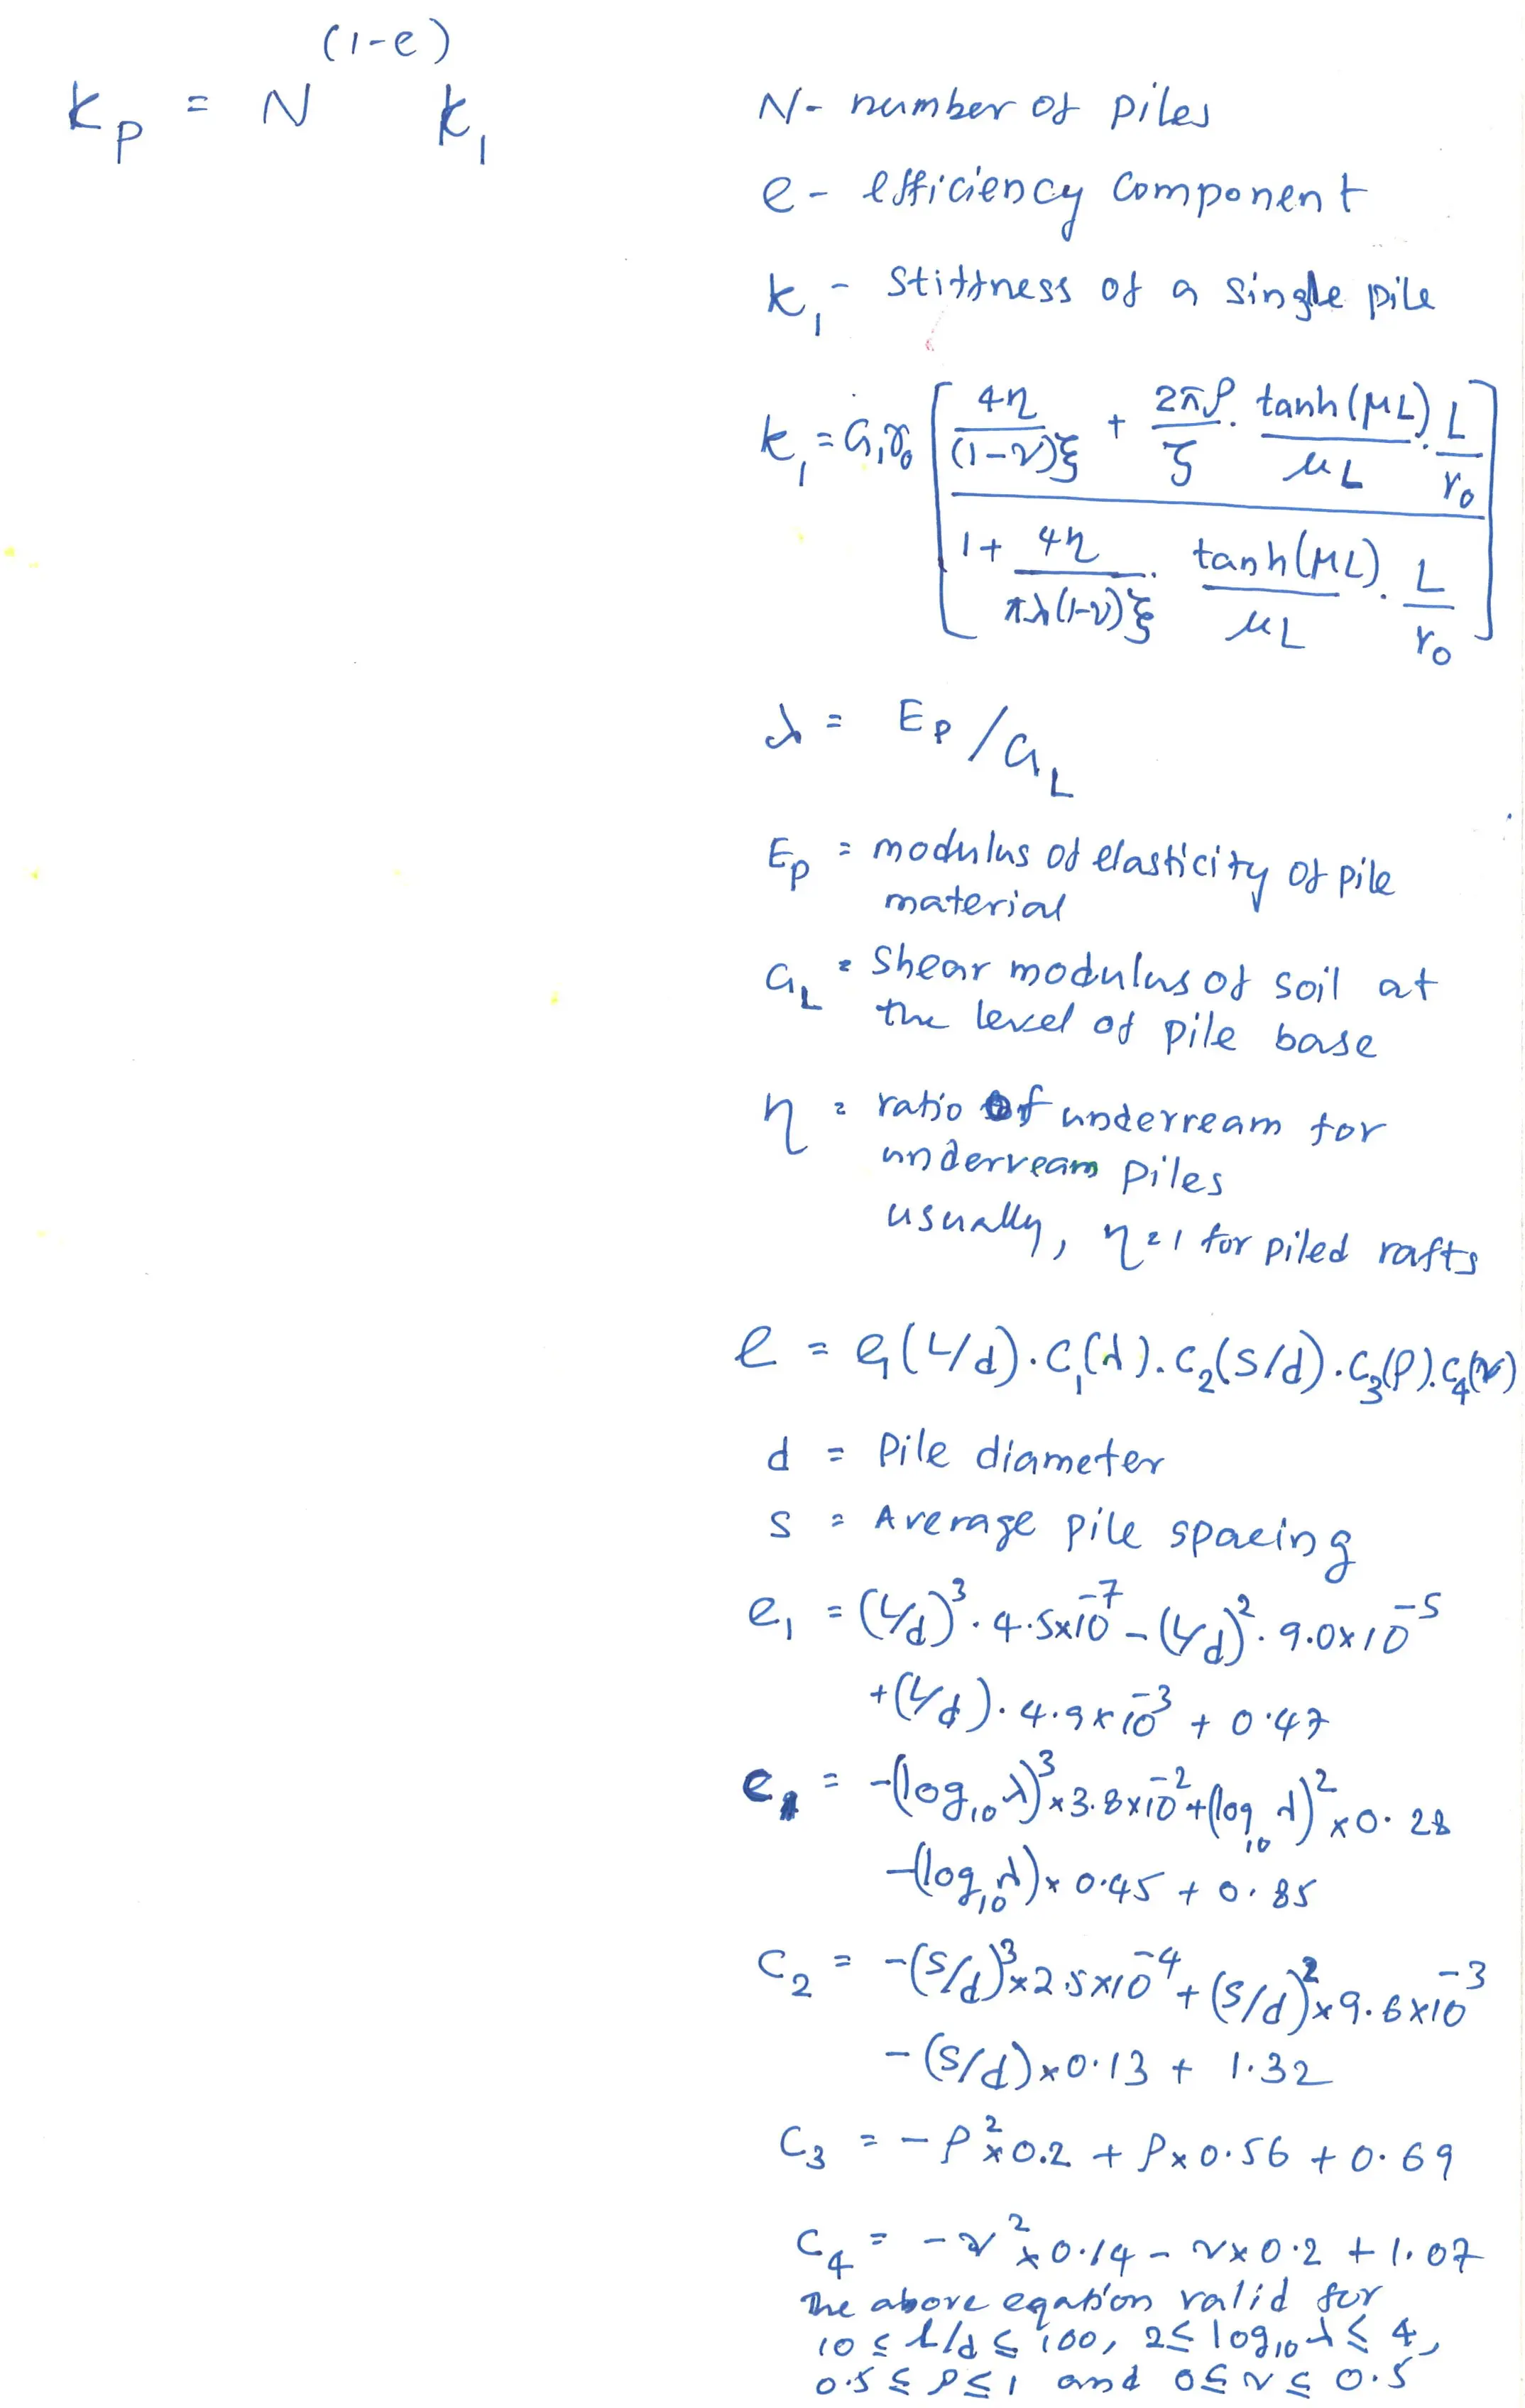 k_p = N^(1-e) k_1
N - number of piles
e - efficiency component
k_1 - stiffness of a single pile
k_1 = G_1 r_0 [ ( 4η/((1-ν)ξ) + (2πρ/ζ) · (tanh(μL)/μL) · (L/r_0) ) / ( 1 + (4η/(πλ(1-ν)ξ)) · (tanh(μL)/μL) · (L/r_0) ) ]
λ = E_P / G_L
E_p = modulus of elasticity of pile
material
G_L = Shear modulus of soil at
the level of pile base
η = ratio of underream for
underream piles
usually, η = 1 for piled rafts
e = e_1(L/d) · C_1(λ) · C_2(S/d) · C_3(ρ) · C_4(ν)
d = Pile diameter
s = Average pile spacing
e_1 = (L/d)^3 · 4.5×10^-7 - (L/d)^2 · 9.0×10^-5
+ (L/d) · 4.9×10^-3 + 0.47
e_1 = -(log_10 λ)^3 × 3.8×10^-2 + (log_10 λ)^2 × 0.28
-(log_10 λ) × 0.45 + 0.85
C_2 = -(S/d)^3 × 2.5×10^-4 + (S/d)^2 × 9.6×10^-3
-(S/d) × 0.13 + 1.32
C_3 = -ρ^2 × 0.2 + ρ × 0.56 + 0.69
C_4 = -ν^2 × 0.14 - ν × 0.2 + 1.07
The above eqation valid for
10 ≤ L/d ≤ 100, 2 ≤ log_10 λ ≤ 4,
0.5 ≤ ρ ≤ 1 and 0 ≤ ν ≤ 0.5